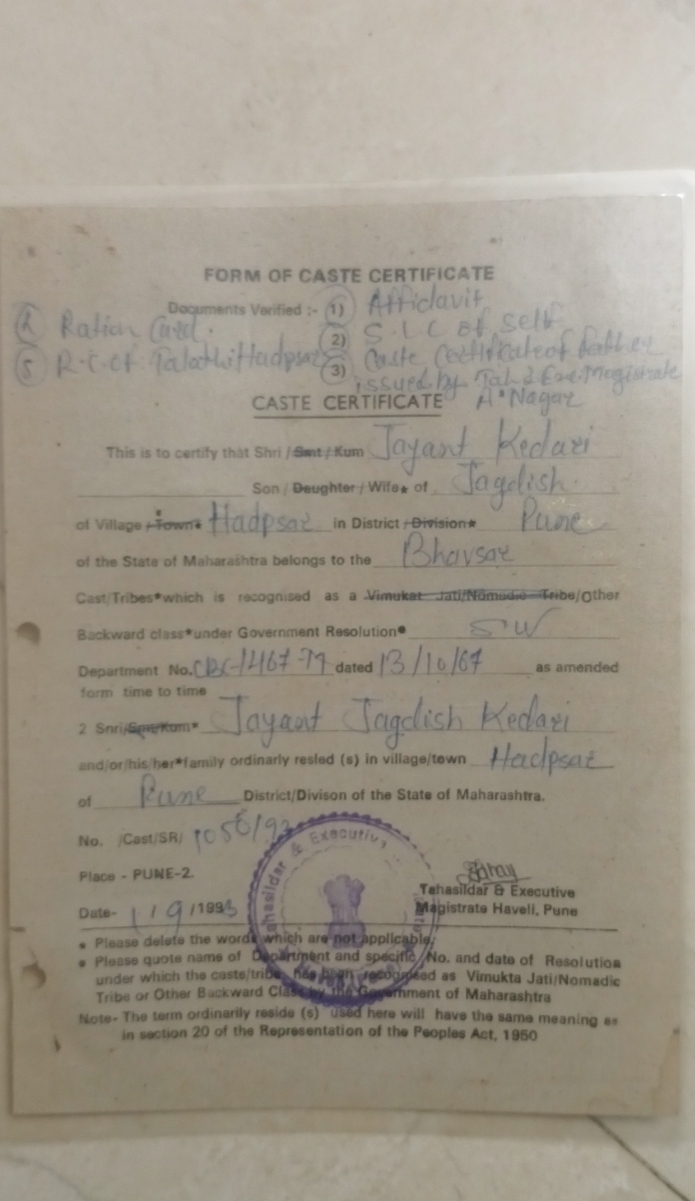 FORM OF CASTE CERTIFICATE
Documents Verified :- 1) Affidavit
4 Ration Card. 2) S.L.C of self
5 R.C. of Talathi Hadpsar 3) Caste Certificate of father
issued by Tah & Exe. Magistrate
A. Nagar
CASTE CERTIFICATE
This is to certify that Shri / Smt / Kum Jayant Kedari
Son / Daughter / Wife* of Jagdish.
of Village / Town* Hadpsar in District / Division* Pune
of the State of Maharashtra belongs to the Bhavsar
Cast/Tribes* which is recognised as a Vimukat Jati/Nomadic Tribe/Other
Backward class* under Government Resolution* SW
Department No. CBC-1467-M dated 13/10/67 as amended
form time to time
2 Shri/Smt/Kum* Jayant Jagdish Kedari
and/or/his/her* family ordinarly resled (s) in village/town Hadpsar
of Pune District/Divison of the State of Maharashtra.
No. /Cast/SR/ 1056/93
Place - PUNE-2.
Tahasildar & Executive
Date- 1/9/1993 Magistrate Haveli, Pune
* Please delete the words which are not applicable.
* Please quote name of Department and specific No. and date of Resolution
under which the caste/tribe has been recognised as Vimukta Jati/Nomadic
Tribe or Other Backward Class by the Government of Maharashtra
Note- The term ordinarily reside (s) used here will have the same meaning as
in section 20 of the Representation of the Peoples Act, 1950
Tahasildar & Executive